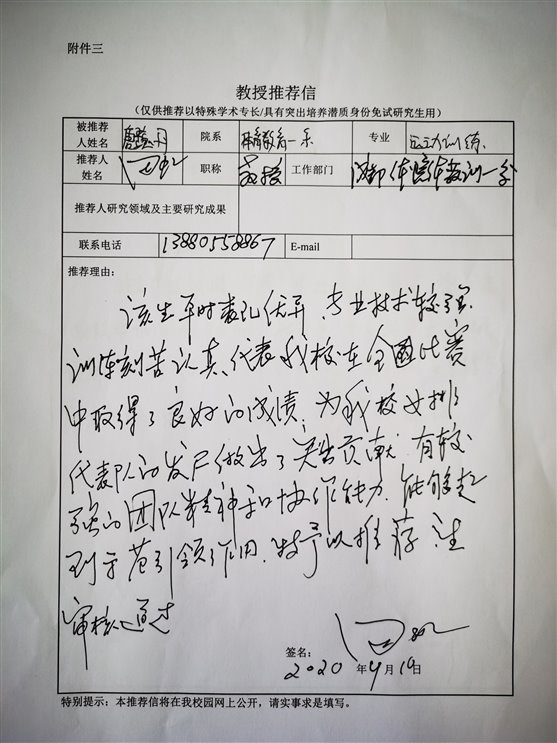 附件三
教授推荐信
（仅供推荐以特殊学术专长/具有突出培养潜质身份免试研究生用）
被推荐人姓名 院系 体育教育一系 专业 运动训练
推荐人姓名 职称 教授 工作部门 成都体院体教训一系
推荐人研究领域及主要研究成果
联系电话 13880558867 E-mail
推荐理由：
该生平时表现优异、专业技术较强
训练刻苦认真、代表我校在全国比赛
中取得了良好的成绩；为我校女排
代表队的发展做出了突出贡献 有较
强的团队精神和协作能力，能够起
到示范引领作用。特予以推荐 请
审核通过
签名：
2020 年 9 月 10 日
特别提示：本推荐信将在我校园网上公开，请实事求是填写。